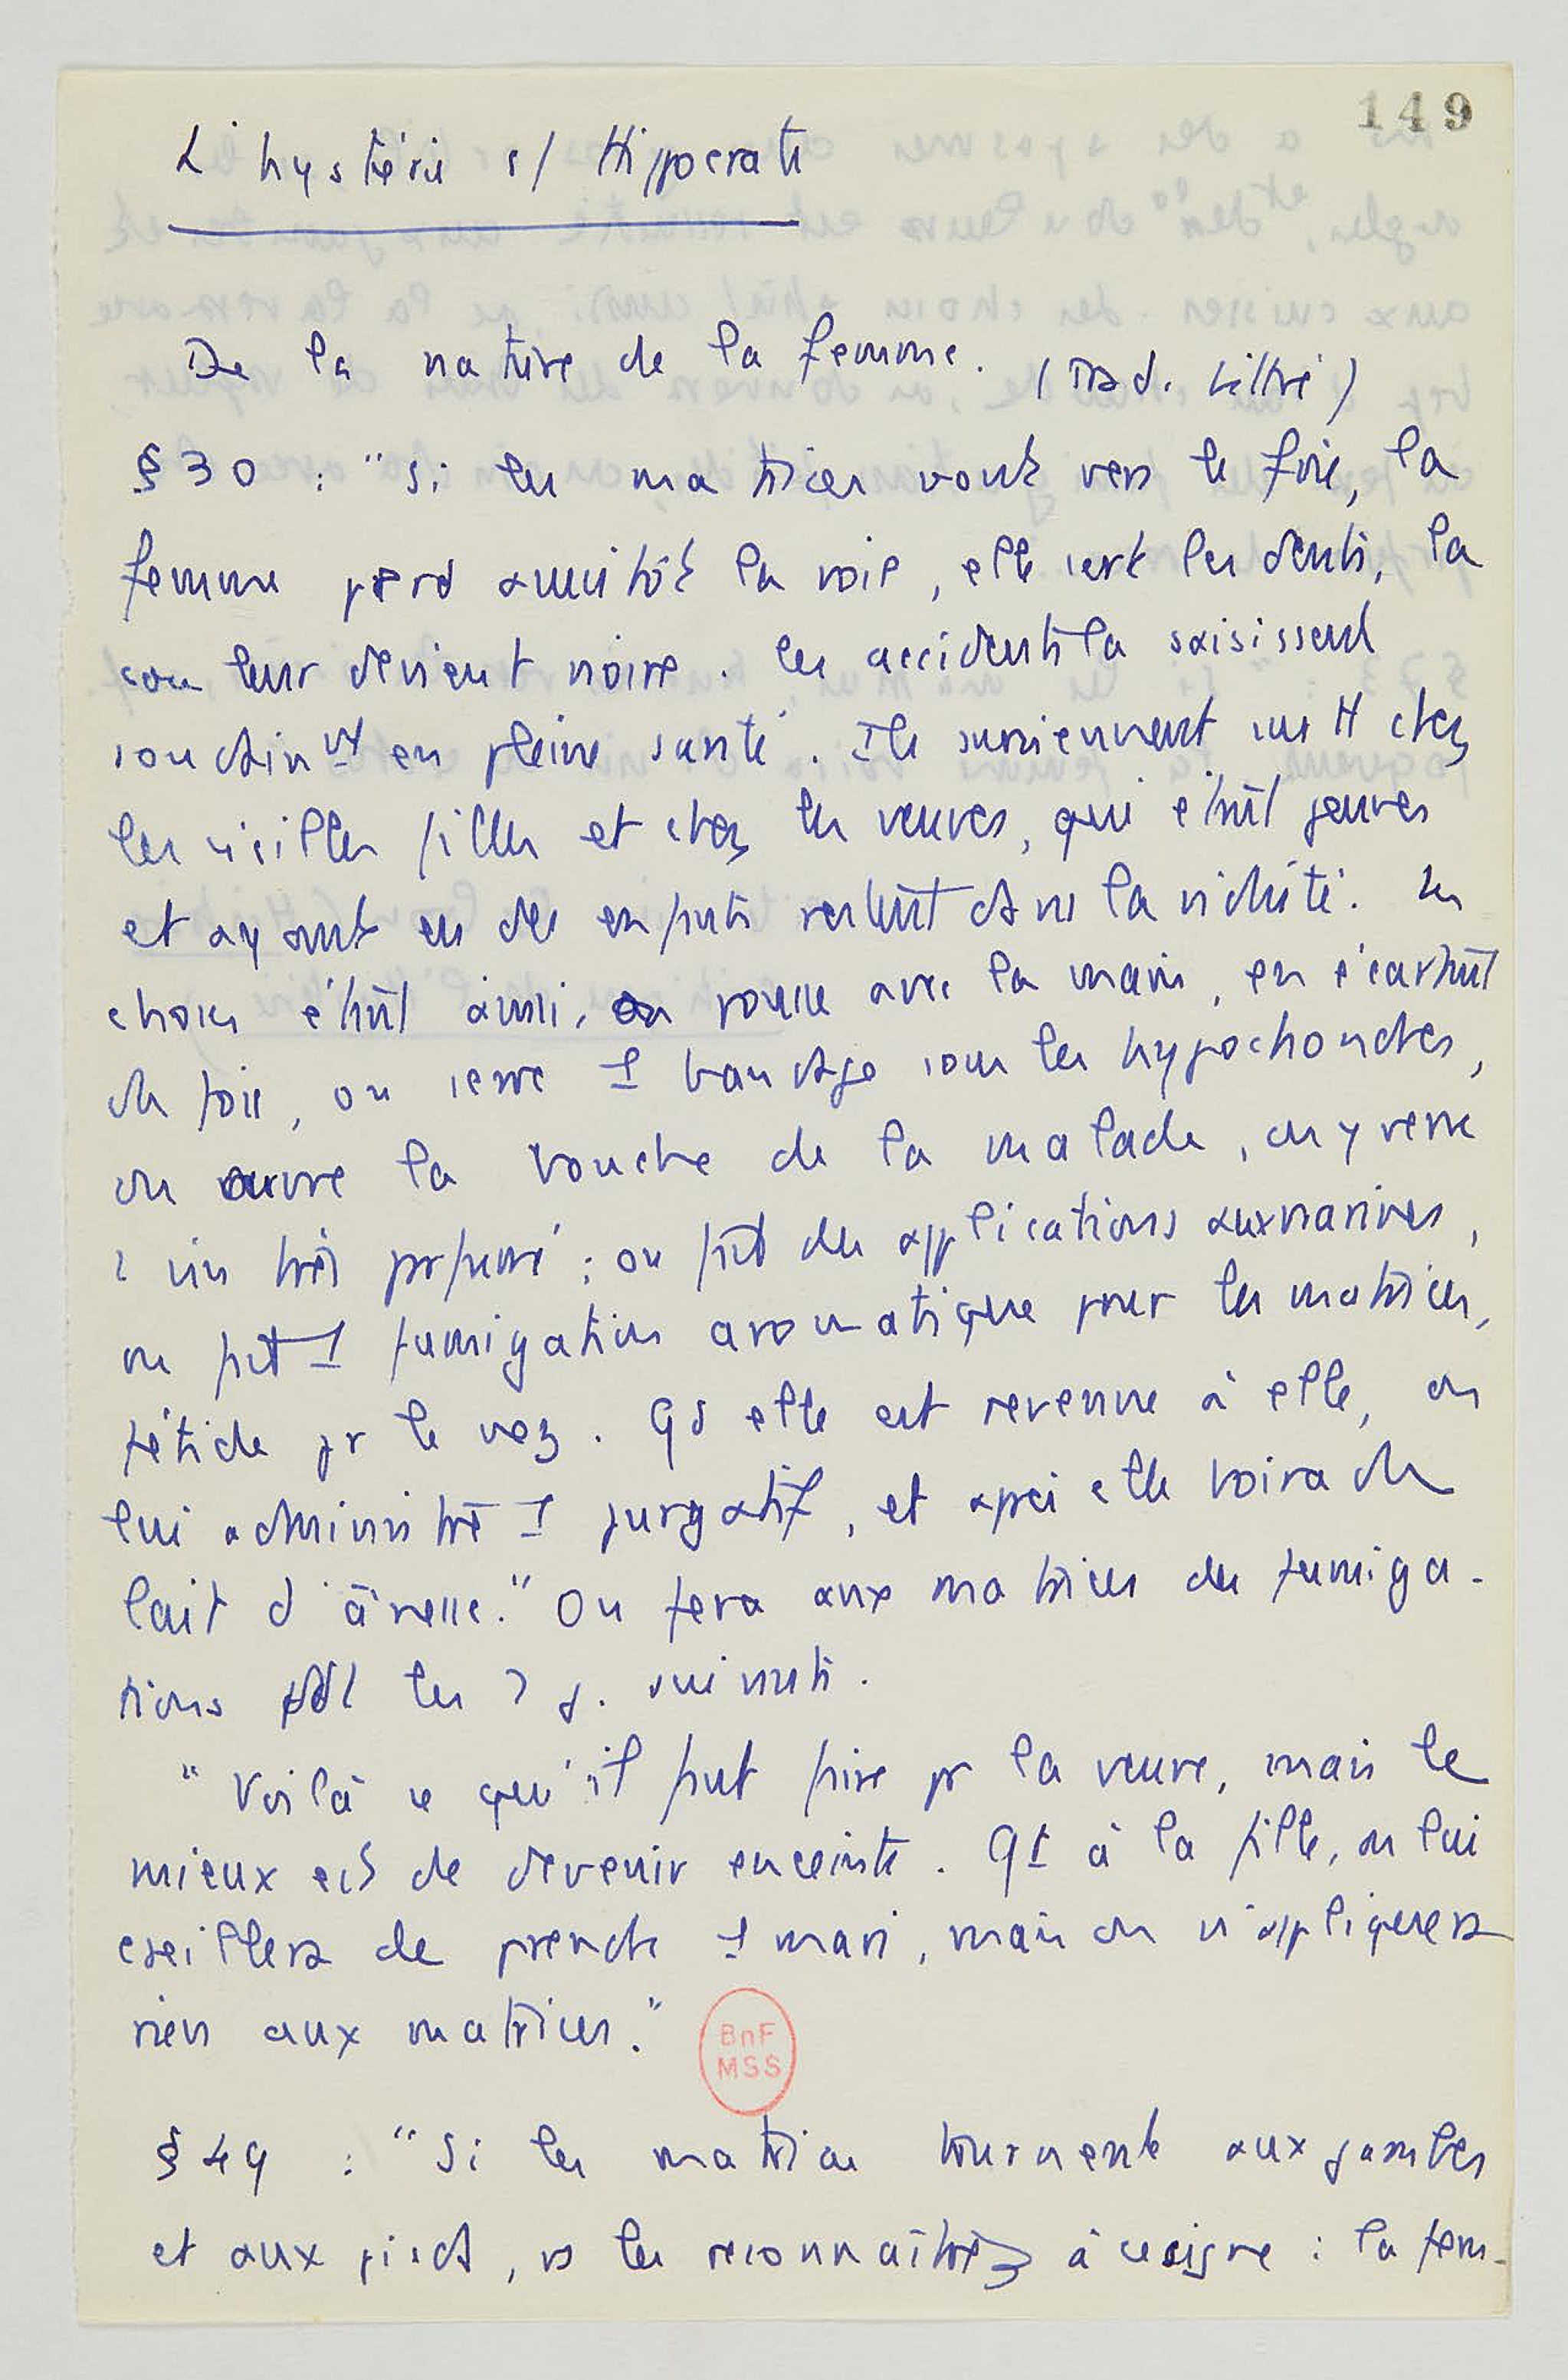 149
L'hystérie s/ Hippocrate
De la nature de la femme. (Trad. Littré)
§ 30 : "Si les matrices vont vers le foie, la
femme perd aussitôt la voix, elle serre les dents, la
couleur devient noire. Les accidents la saisissent
soudainemt en pleine santé. Ils surviennent surtt chez
les vieilles filles et chez les veuves, qui étant jeunes
et ayant eu des enfants restent dans la viduité. Les
choses étant ainsi, on pousse avec la main, en écartant
du foie, on serre 1 bandage sous les hypochondres,
on ouvre la bouche de la malade, on y verse
1 vin très parfumé ; on fait des applications aux narines,
on fait 1 fumigation aromatique pour les matrices,
fétide pr le nez. Qd elle est revenue à elle, on
lui administre 1 purgatif, et après elle boira du
lait d'ânesse." On fera aux matrices des fumiga-
tions pdt les j. suivants.
"Voilà ce qu'il faut faire pr la veuve, mais le
mieux est de devenir enceinte. Qt à la fille, on lui
cseillera de prendre 1 mari, mais on n'appliquera
rien aux matrices."
BnF
MSS
§ 49 : "Si les matrices tournent aux jambes
et aux pieds, vs les reconnaîtrez à ce signe : la fem-